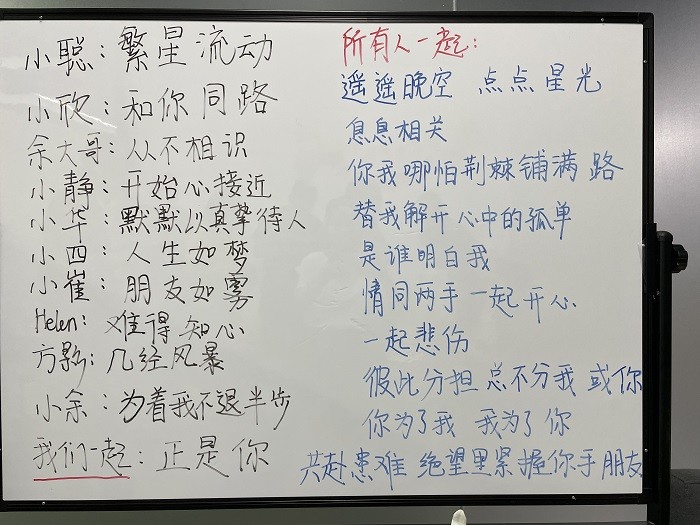 小聪：繁星流动
小欣：和你同路
余大哥：从不相识
小静：开始心接近
小华：默默以真挚待人
小四：人生如梦
小崔：朋友如雾
Helen：难得知心
方影：几经风暴
小余：为着我不退半步
我们一起：正是你
所有人一起：
遥遥晚空 点点星光
息息相关
你我哪怕荆棘铺满路
替我解开心中的孤单
是谁明白我
情同两手一起开心
一起悲伤
彼此分担 总不分我或你
你为了我 我为了你
共赴患难 绝望里紧握你手朋友